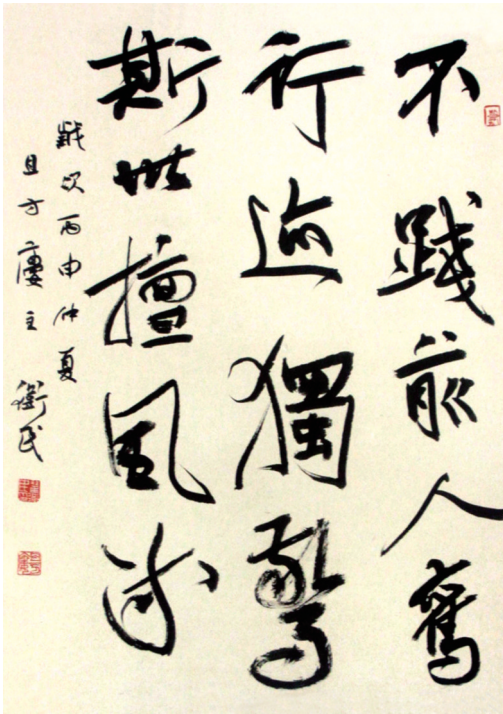 不踐前人舊
行迹獨驚
斯世擅風流
歲次丙申仲夏
且方廔主 衛民